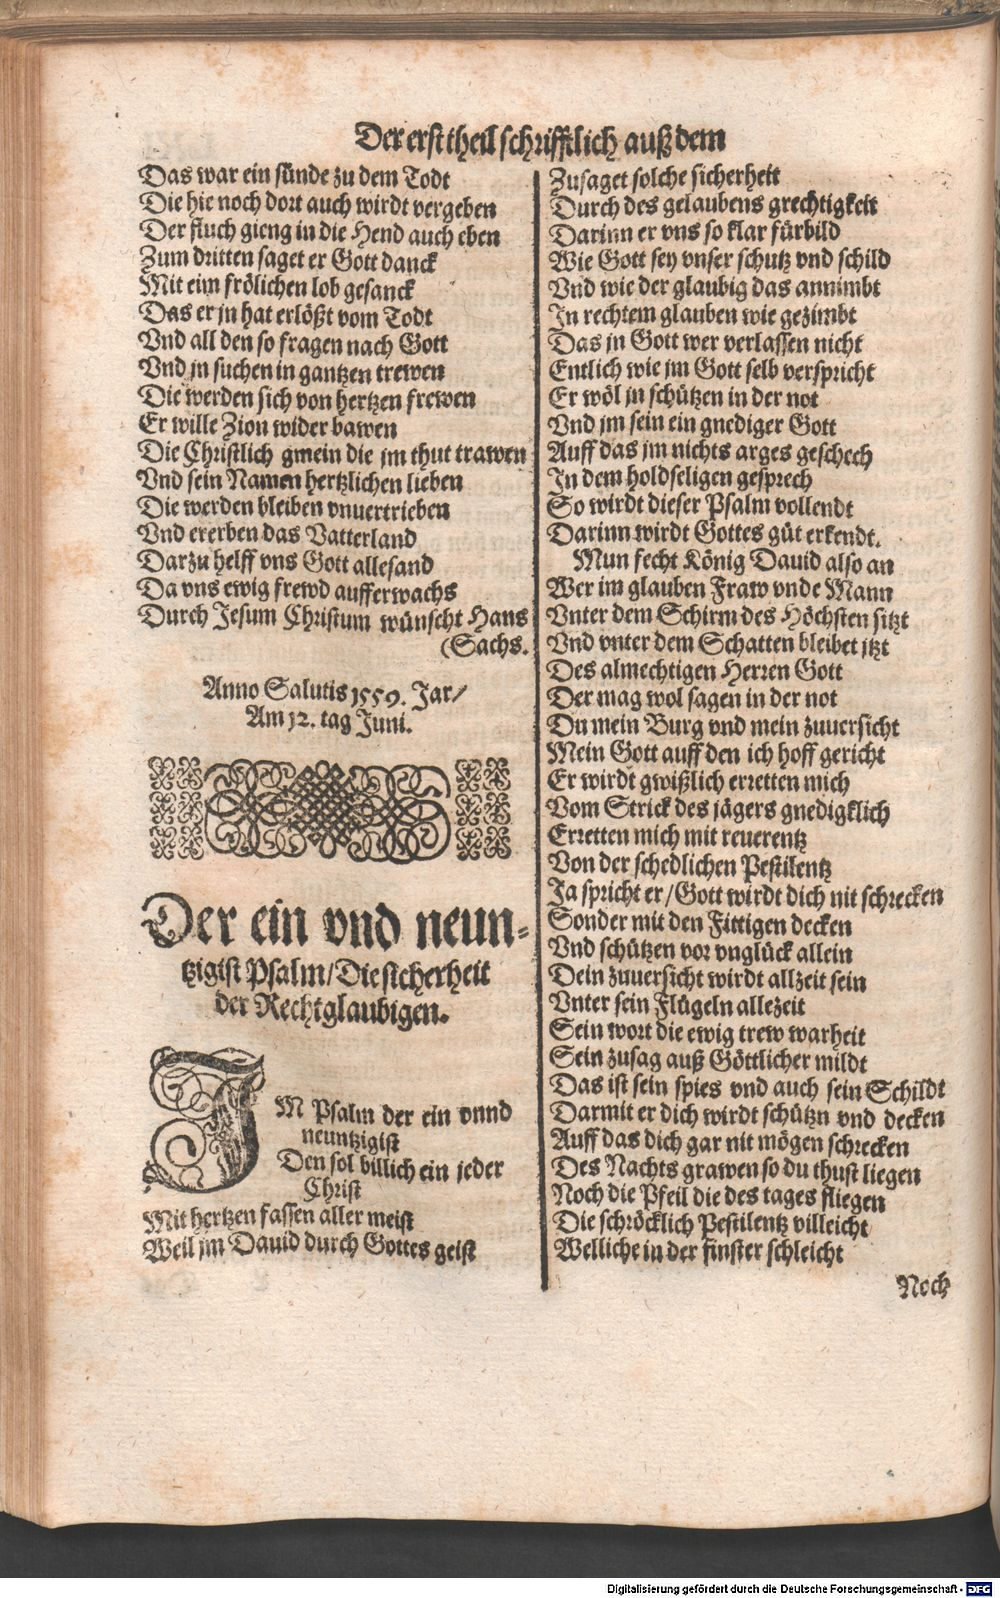 Der erst theil schrifftlich auß dem
Das war ein sünde zu dem Todt
Die hie noch dort auch wirdt vergeben
Der fluch gieng in die Hend auch eben
Zum dritten saget er Gott danck
Mit eim frölichen lob gesanck
Das er jn hat erlößt vom Todt
Vnd all den so fragen nach Gott
Vnd jn suchen in gantzen trewen
Die werden sich von hertzen frewen
Er wille Zion wider bawen
Die Christlich gmein die jm thut trawen
Vnd sein Namen hertzlichen lieben
Die werden bleiben vnuertrieben
Vnd ererben das Vatterland
Darzu helff vns Gott allesand
Da vns ewig frewd aufferwachs
Durch Jesum Christum wünscht Hans
(Sachs.
Anno Salutis 1559. Jar/
Am 12. tag Juni.
Der ein vnd neun-
tzigist Psalm/ Die sicherheit
der Rechtglaubigen.
IM Psalm der ein vnnd
neuntzigist
Den sol billich ein jeder
Christ
Mit hertzen fassen aller meist
Weil jm Dauid durch Gottes geist
Zusaget solche sicherheit
Durch des gelaubens grechtigkeit
Darinn er vns so klar fürbild
Wie Gott sey vnser schutz vnd schild
Vnd wie der glaubig das annimbt
In rechtem glauben wie gezimbt
Das jn Gott wer verlassen nicht
Entlich wie jm Gott selb verspricht
Er wöl jn schützen in der not
Vnd jm sein ein gnediger Gott
Auff das jm nichts arges geschech
In dem holdseligen gesprech
So wirdt dieser Psalm vollendt
Darinn wirdt Gottes güt erkendt.
Nun fecht König Dauid also an
Wer im glauben Fraw vnde Mann
Vnter dem Schirm des Höchsten sitzt
Vnd vnter dem Schatten bleibet jtzt
Des almechtigen Herren Gott
Der mag wol sagen in der not
Du mein Burg vnd mein zuuersicht
Mein Gott auff den ich hoff gericht
Er wirdt gwißlich erretten mich
Vom Strick des jägers gnedigklich
Erretten mich mit reuerentz
Von der schedlichen Pestilentz
Ja spricht er/ Gott wirdt dich nit schrecken
Sonder mit den Fittigen decken
Vnd schützen vor vnglück allein
Dein zuuersicht wirdt allzeit sein
Vnter sein Flügeln allezeit
Sein wort die ewig trew warheit
Sein zusag auß Göttlicher mildt
Das ist sein spies vnd auch sein Schildt
Darmit er dich wirdt schützn vnd decken
Auff das dich gar nit mögen schrecken
Des Nachts grawen so du thust liegen
Noch die Pfeil die des tages fliegen
Die schröcklich Pestilentz villeicht
Welliche in der finster schleicht
Noch
Digitalisierung gefördert durch die Deutsche Forschungsgemeinschaft - DFG